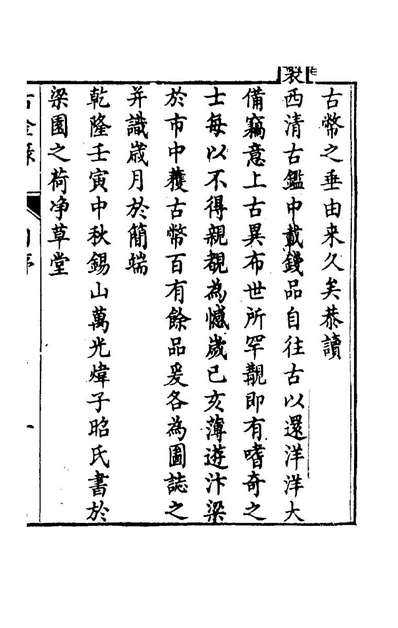 古幣之垂由来久矣恭讀
製
西清古鑑中載錢品自往古以還洋洋大
備竊意上古異布世所罕覯即有嗜奇之
士每以不得親覩為憾歲己亥薄遊汴梁
於市中蒦古幣百有餘品爰各為圖誌之
并識歲月於簡端
乾隆壬寅中秋錫山萬光煒子昭氏書於
梁園之荷净草堂